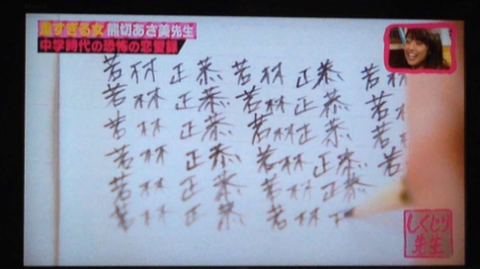 重すぎる女 熊切あさ美先生
中学時代の恐怖の恋愛録
若林 正恭 若林 正恭 若林
若林 正恭 若林 正恭 若
若林 正恭 若林 正恭 若
若林 正恭 若林 正恭 若
若林 正恭 若林 正恭
若林 正恭 若林
しくじり
先生